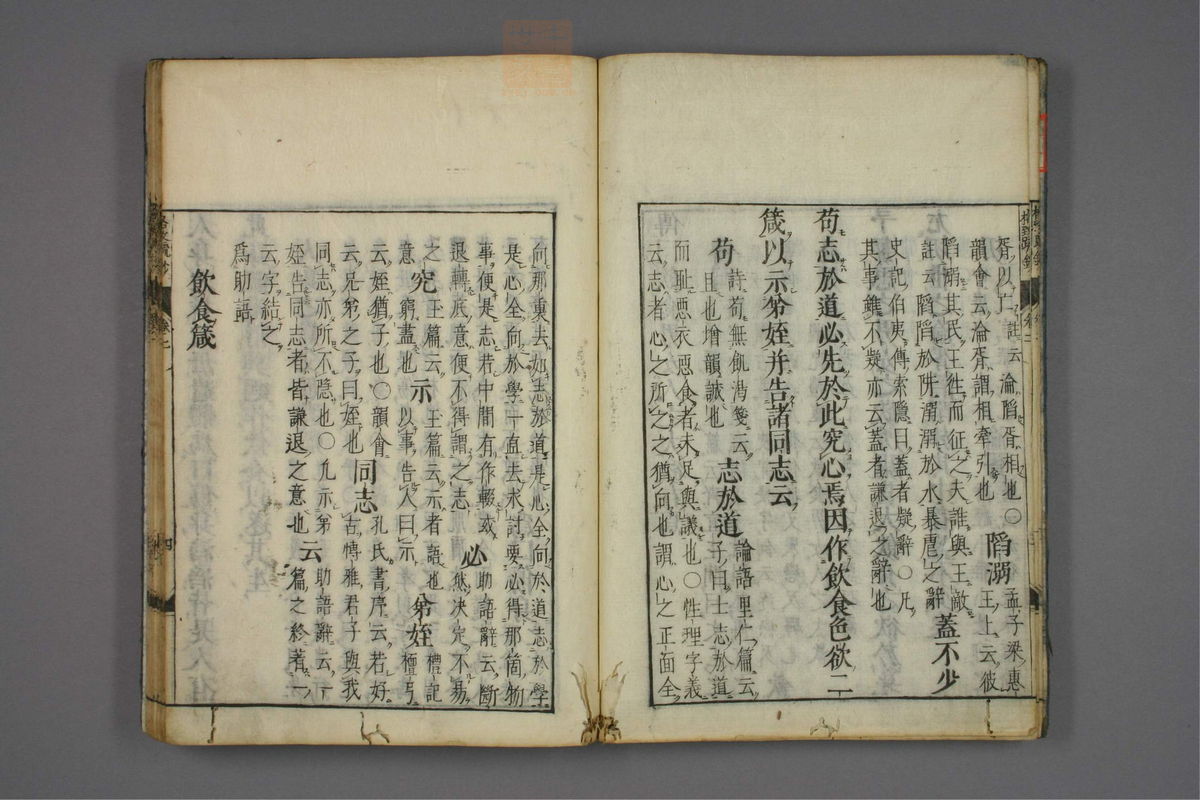 胥以亡註云淪陷胥相也〇陷溺孟子梁惠
韻會云淪胥謂相牽引也王上云彼
陷溺其民王徃而征之夫誰與王敵
註云陷陷於阱溺溺於水暴虐之辭蓋不少
史記伯夷傳索隱曰蓋者疑辭〇凡
其事雖不疑亦云蓋者謙退之辭也
苟志於道必先於此究心焉因作飲食色欲二
箴以示弟姪并告諸同志云
苟詩苟無飢渇箋云志於道論語里仁篇云
且也增韻誠也子曰士志於道
而耻惡衣惡食者未足與議也〇性理字義
云志者心之所之之猶向也謂心之正面全
向那裏去如志於道是心全向於道志於學
是心全向於學一直去求討要必得那箇物
事便是志若中間有作輟或必助語辭云斷
退轉底意便不得謂之志然决定不易
之意究玉篇云窮盡也示玉篇云示者語也以事告人曰示弟姪禮記檀弓
云兄弟之子曰姪猶子也〇韻會孔氏書序云若好
同志亦所不隱也〇凡示弟古博雅君子與我
姪告同志者皆謙退之意也云助語辭云一篇之終著一
云字結之
爲助語
飲食箴